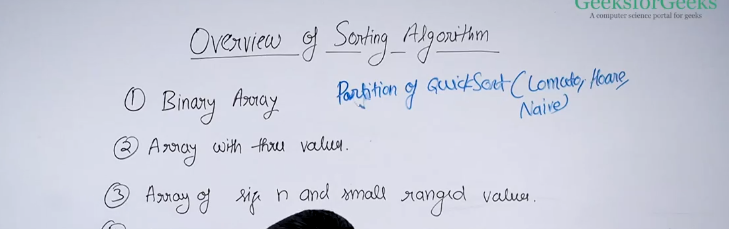 GeeksforGeeks
A computer science portal for geeks
Overview of Sorting Algorithm
① Binary Array
Partition of QuickSort (Lomuto, Hoare,
Naive)
② Array with three values.
③ Array of size n and small ranged values.